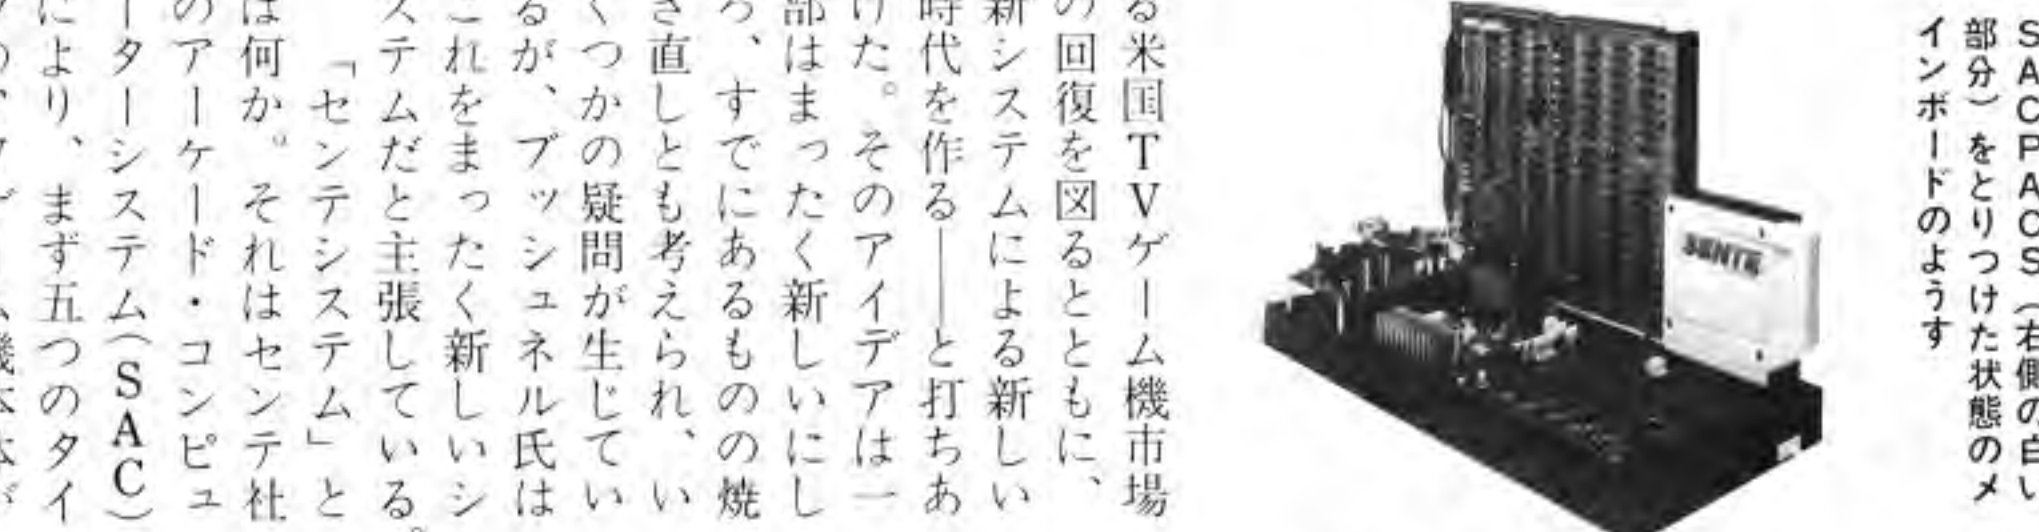 SACPACS(右側の白い
部分)をとりつけた状態のメ
インボードのようす
SENTE
る米国TVゲーム機市場
の回復を図るとともに、
新システムによる新しい
時代を作る――と打ちあ
けた。そのアイデアは一
部はまったく新しいにし
ろ、すでにあるものの焼
き直しとも考えられ、い
くつかの疑問が生じてい
るが、ブッシュネル氏は
これをまったく新しいシ
ステムだと主張している。
「センテシステム」と
は何か。それはセンテ社
のアーケード・コンピュ
ーターシステム(SAC)
により、まず五つのタイ